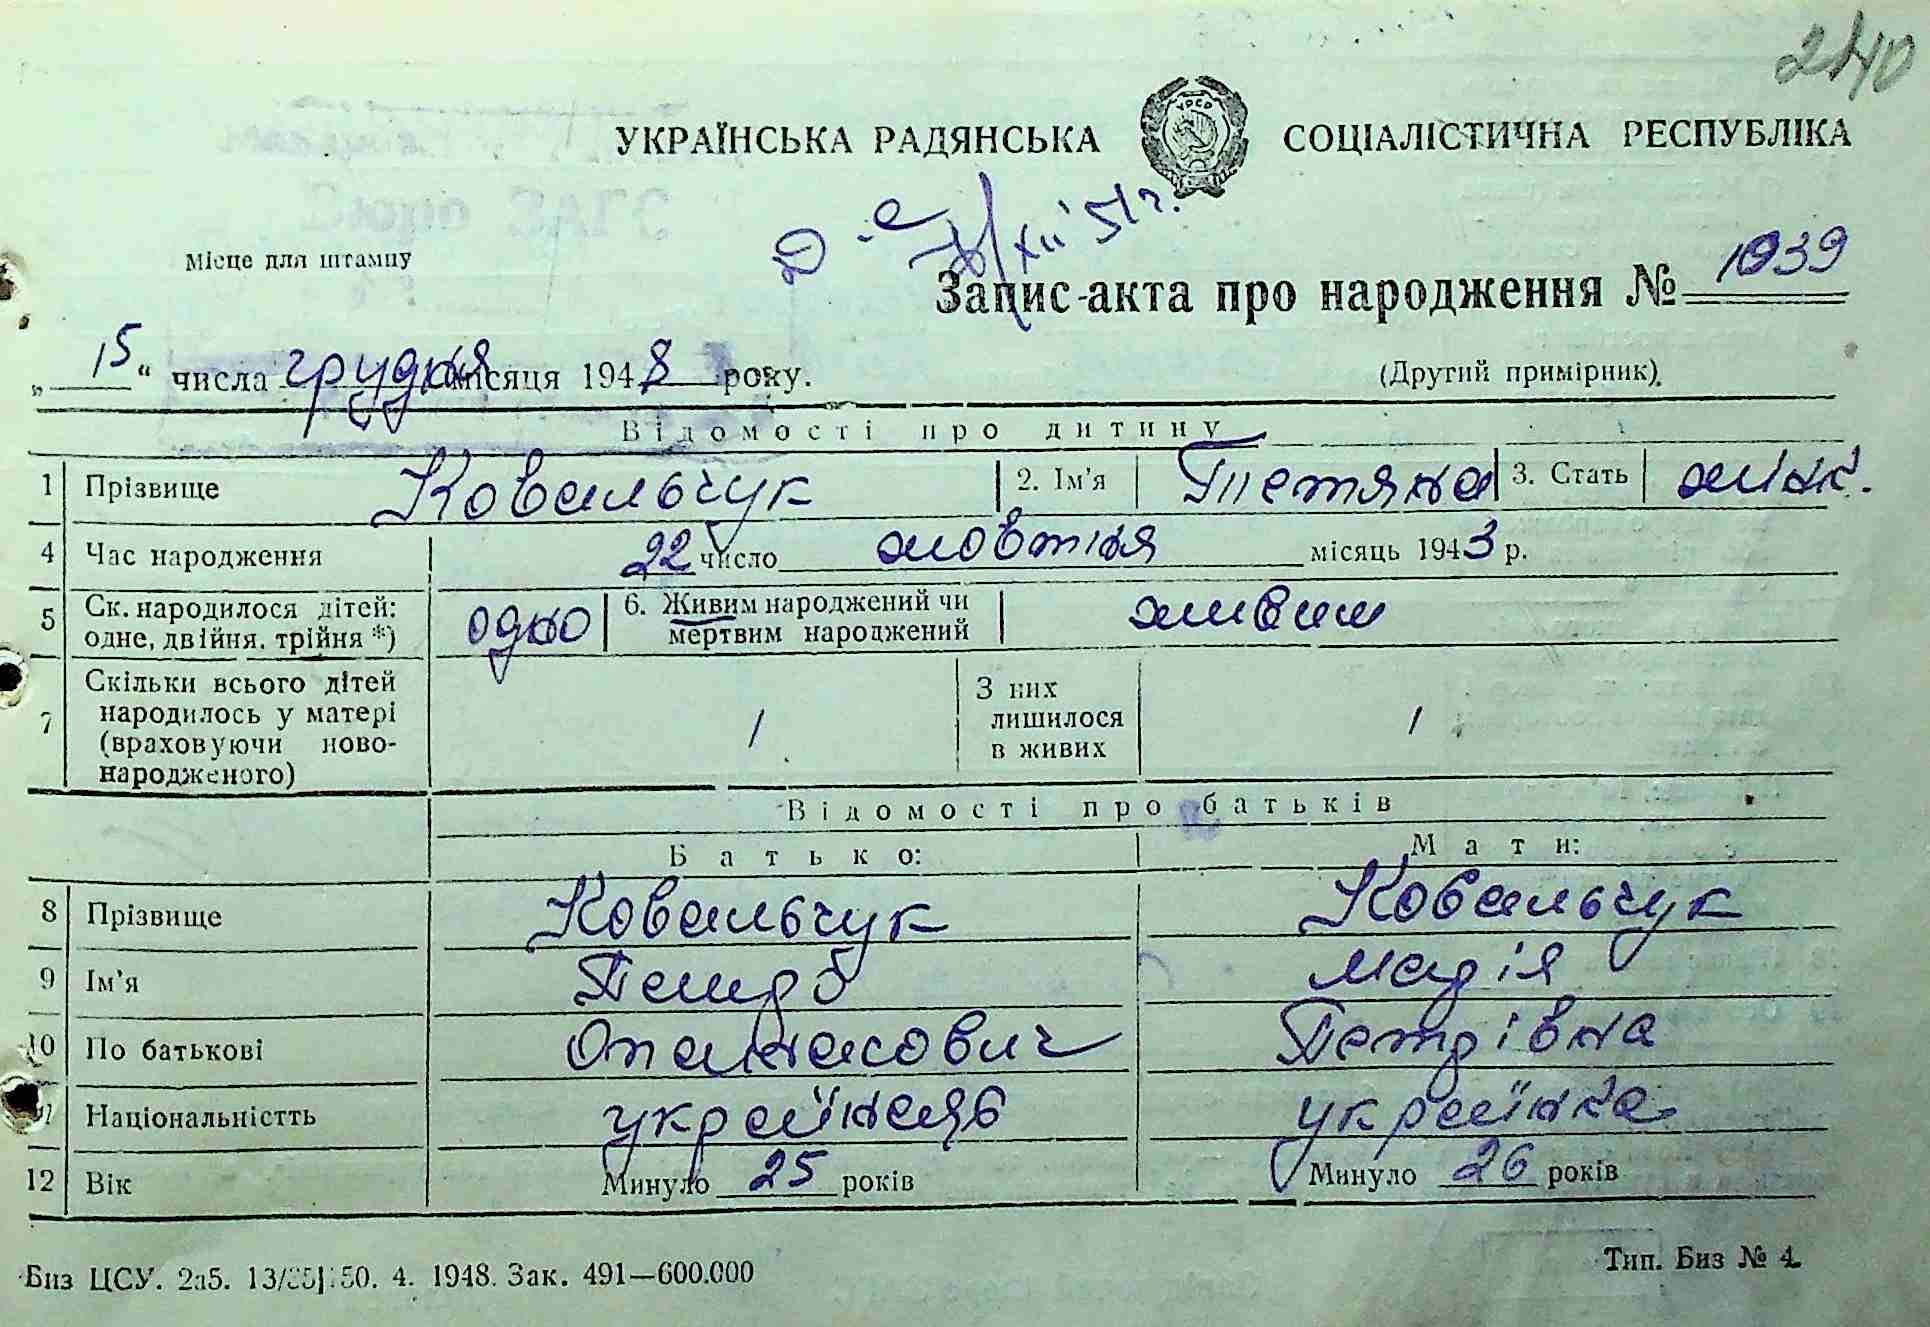 240
УКРАЇНСЬКА РАДЯНСЬКА СОЦІАЛІСТИЧНА РЕСПУБЛІКА
УРСР
Місце для штампу
XII 51 г.
Запис-акта про народження № 1039
„ 15 “ числа грудня місяця 1948 року.
(Другий примірник).
Відомості про дитину
1 Прізвище Ковальчук 2. Ім'я Тетяна 3. Стать жін.
4 Час народження 22 число жовтня місяць 1943 р.
5 Ск. народилося дітей: одне, двійня, трійня *) одно 6. Живим народжений чи мертвим народжений живим
7 Скільки всього дітей народилось у матері (враховуючи ново-народженого) 1 З них лишилося в живих 1
Відомості про батьків
Батько: Мати:
8 Прізвище Ковальчук Ковальчук
9 Ім'я Петро Марія
10 По батькові Опанасович Петрівна
11 Національністть українець українка
12 Вік Минуло 25 років Минуло 26 років
Биз ЦСУ. 2а5. 4. 1948. Зак. 491—600.000
Тип. Биз № 4.